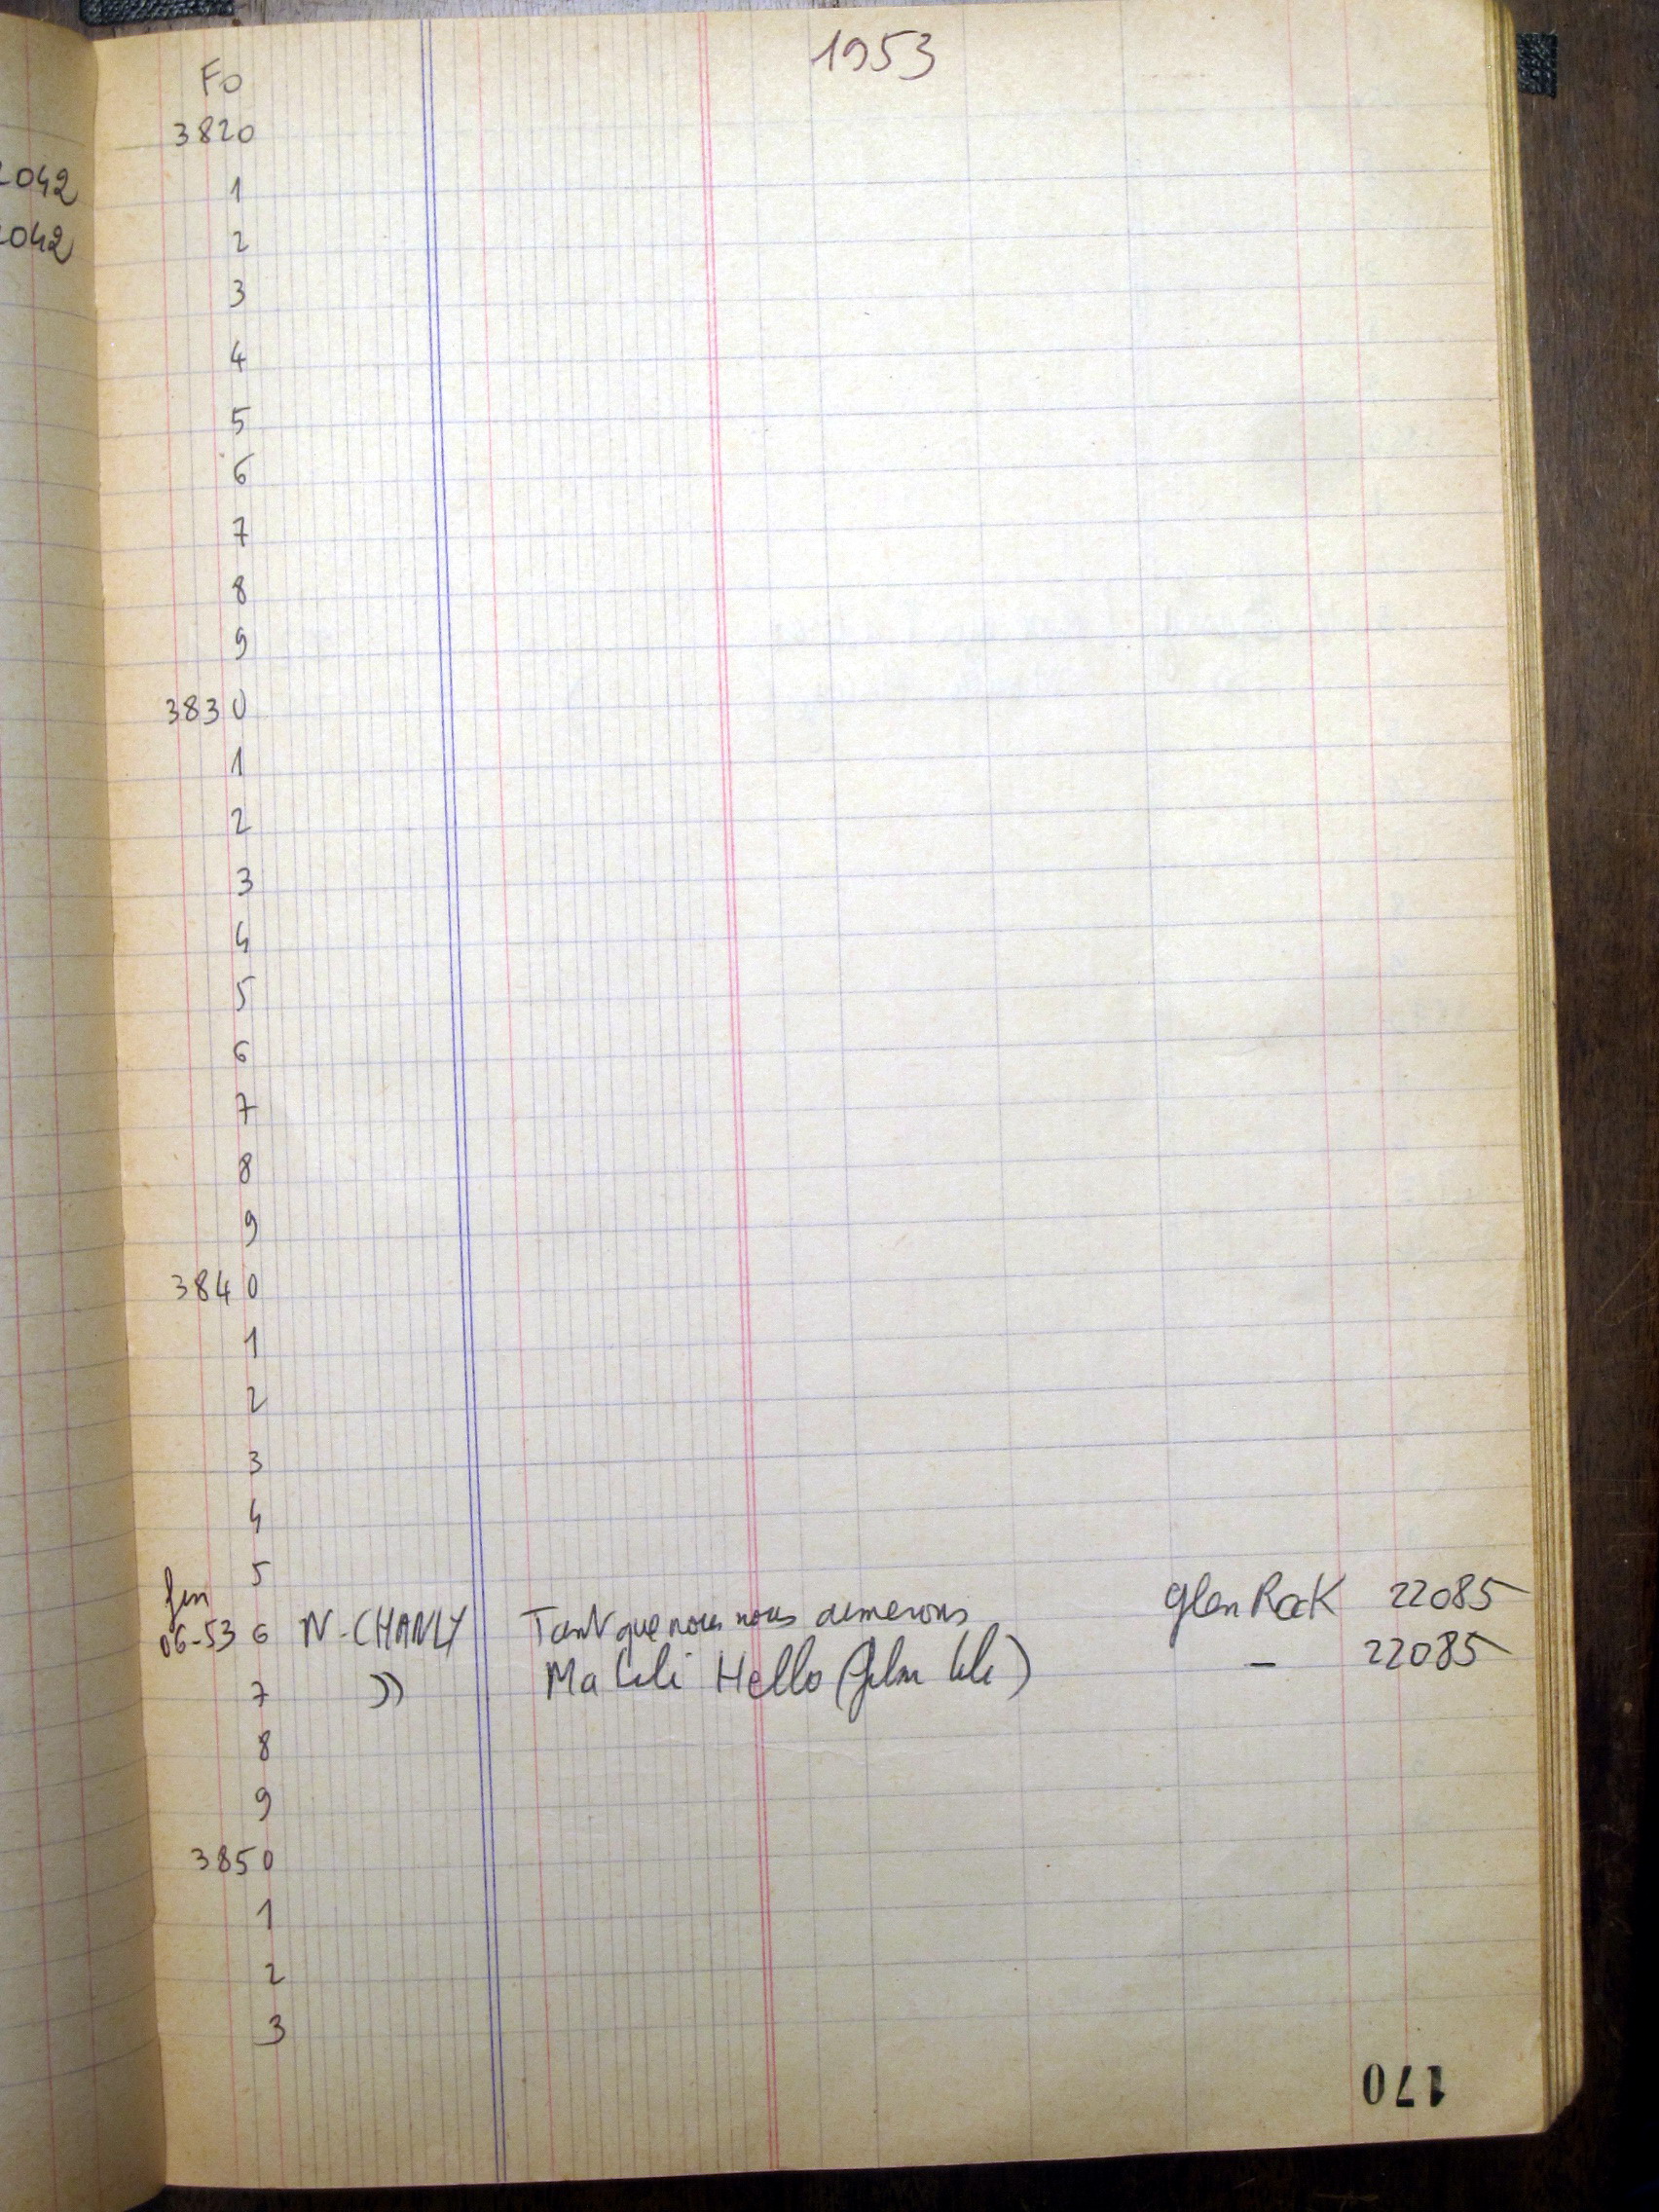 1953
Fo
3820
1
2
3
4
5
6
7
8
9
3830
1
2
3
4
5
6
7
8
9
3840
1
2
3
4
5
06-53 6 N-CHANLY Tant que nous nous aimerons Glen Rock 22085
7 » Ma Lili Hello (film Lili) – 22085
8
9
3850
1
2
3
170
042
042